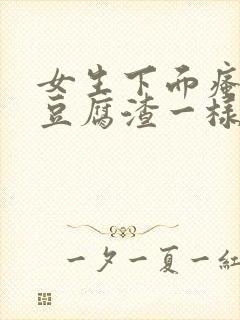 女生下面瘙
豆腐渣一样
一夕一夏一紅